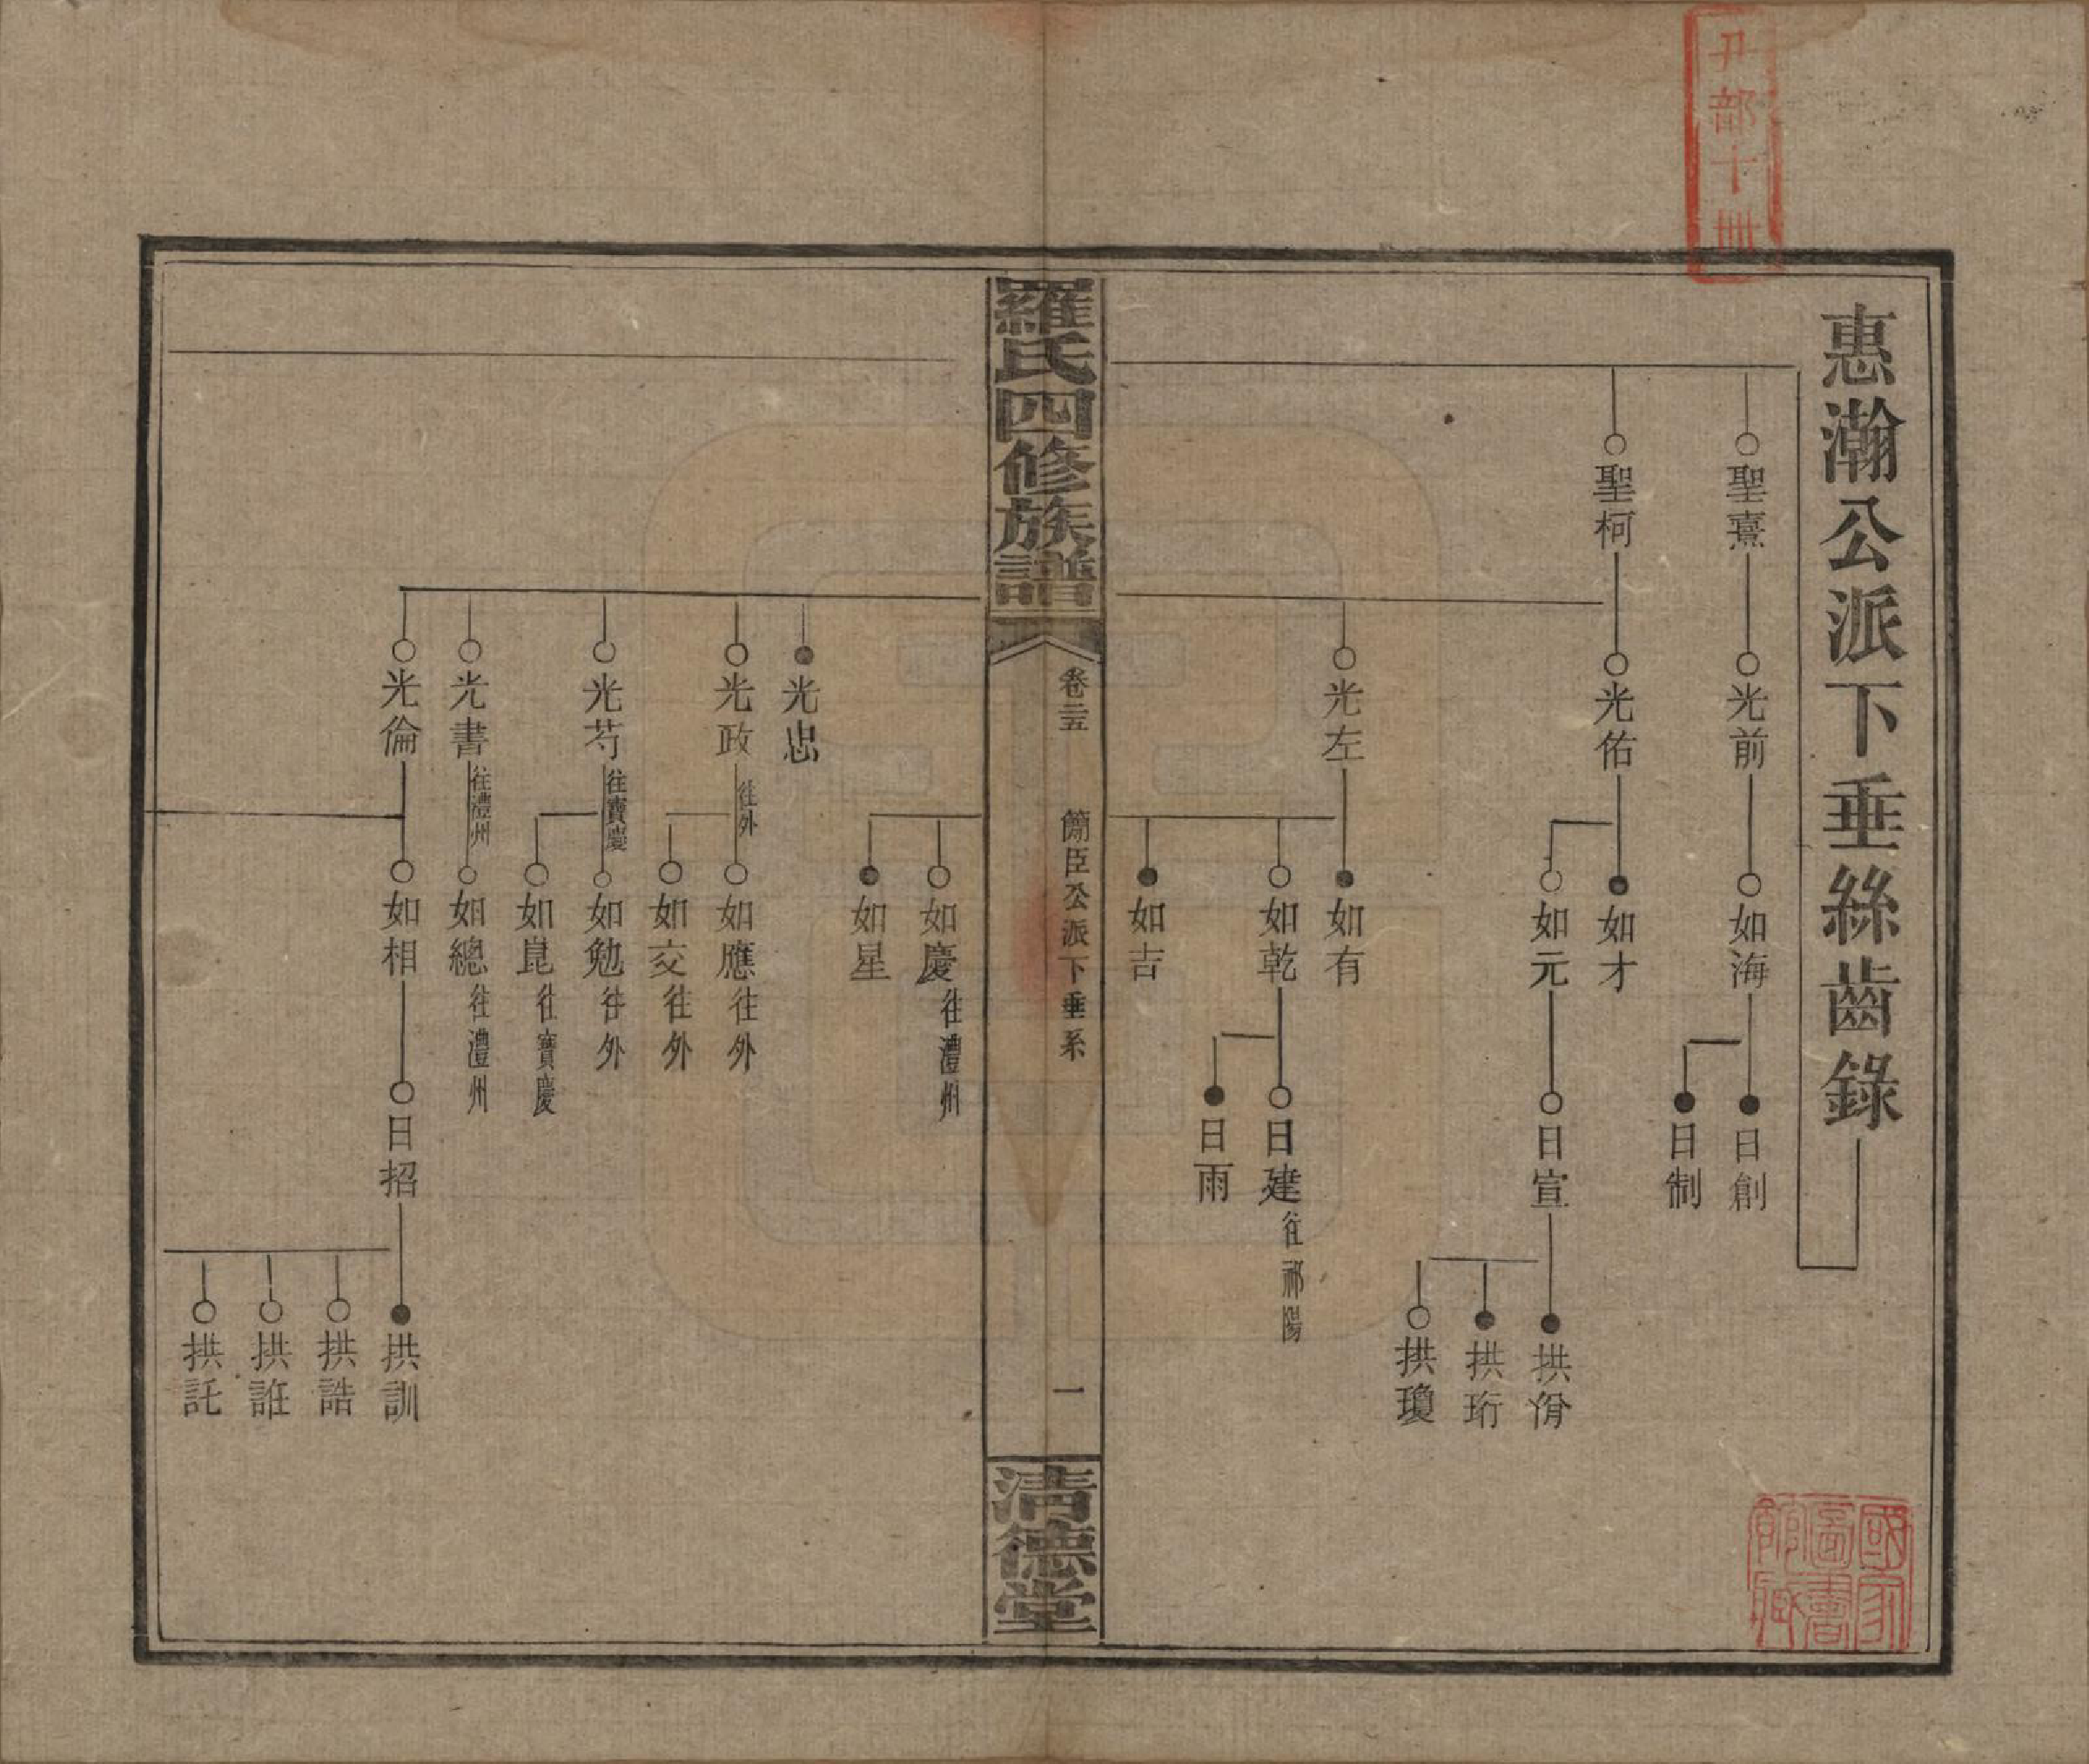 惠瀚公派下垂絲齒錄
聖熹
光前
如海
日創
日制
聖柯
光佑
如才
如元
日宣
拱㑗
拱珩
拱瓊
光左
如有
如乾
日建往祁陽
日雨
如吉
羅氏四修族譜
卷二五
簡臣公派下垂系
一
清德堂
如慶往澧州
如星
光忠
光政往外
如應往外
如交往外
光芍往寶慶
如勉往外
如崑往寶慶
光書往澧州
如總往澧州
光倫
如相
日招
拱訓
拱誥
拱誑
拱託
部十
國家圖書館藏